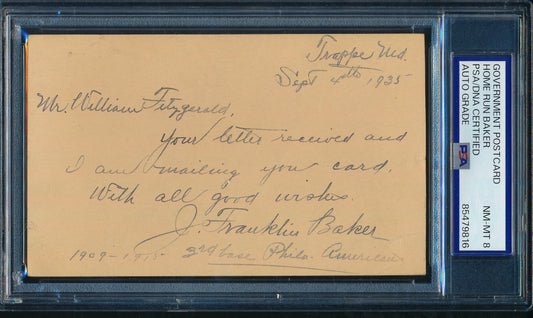 Trappe Md.
Sept 4th 1935
Mr. William Fitzgerald,
Your letter received and
I am mailing you card.
With all good wishes.
J. Franklin Baker
1909-1915 3rd base Phila. American
GOVERNMENT POSTCARD
HOME RUN BAKER
PSA/DNA CERTIFIED
AUTO GRADE
NM-MT 8
85479816
PSA